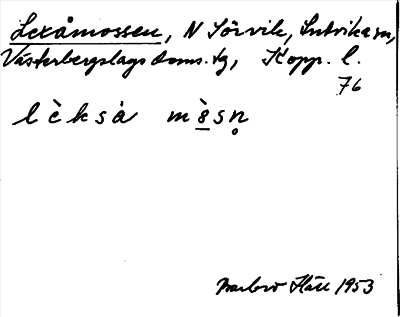 Lexåmossen, N Sörvik, Ludvika sn,
Västerbergslags doms. tg, Kopp. l.
76
lèksȧ mèsn̥
Hall 1953